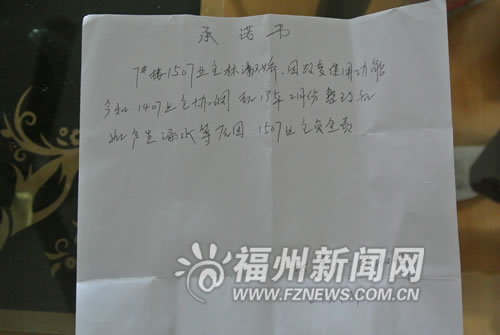 承诺书
7#楼1507业主林 因改变使用功能
今和1407业主协调 和13年2月份整改如
此产生渗水等原因 1507业主负全责
福州新闻网
WWW.FZNEWS.COM.CN